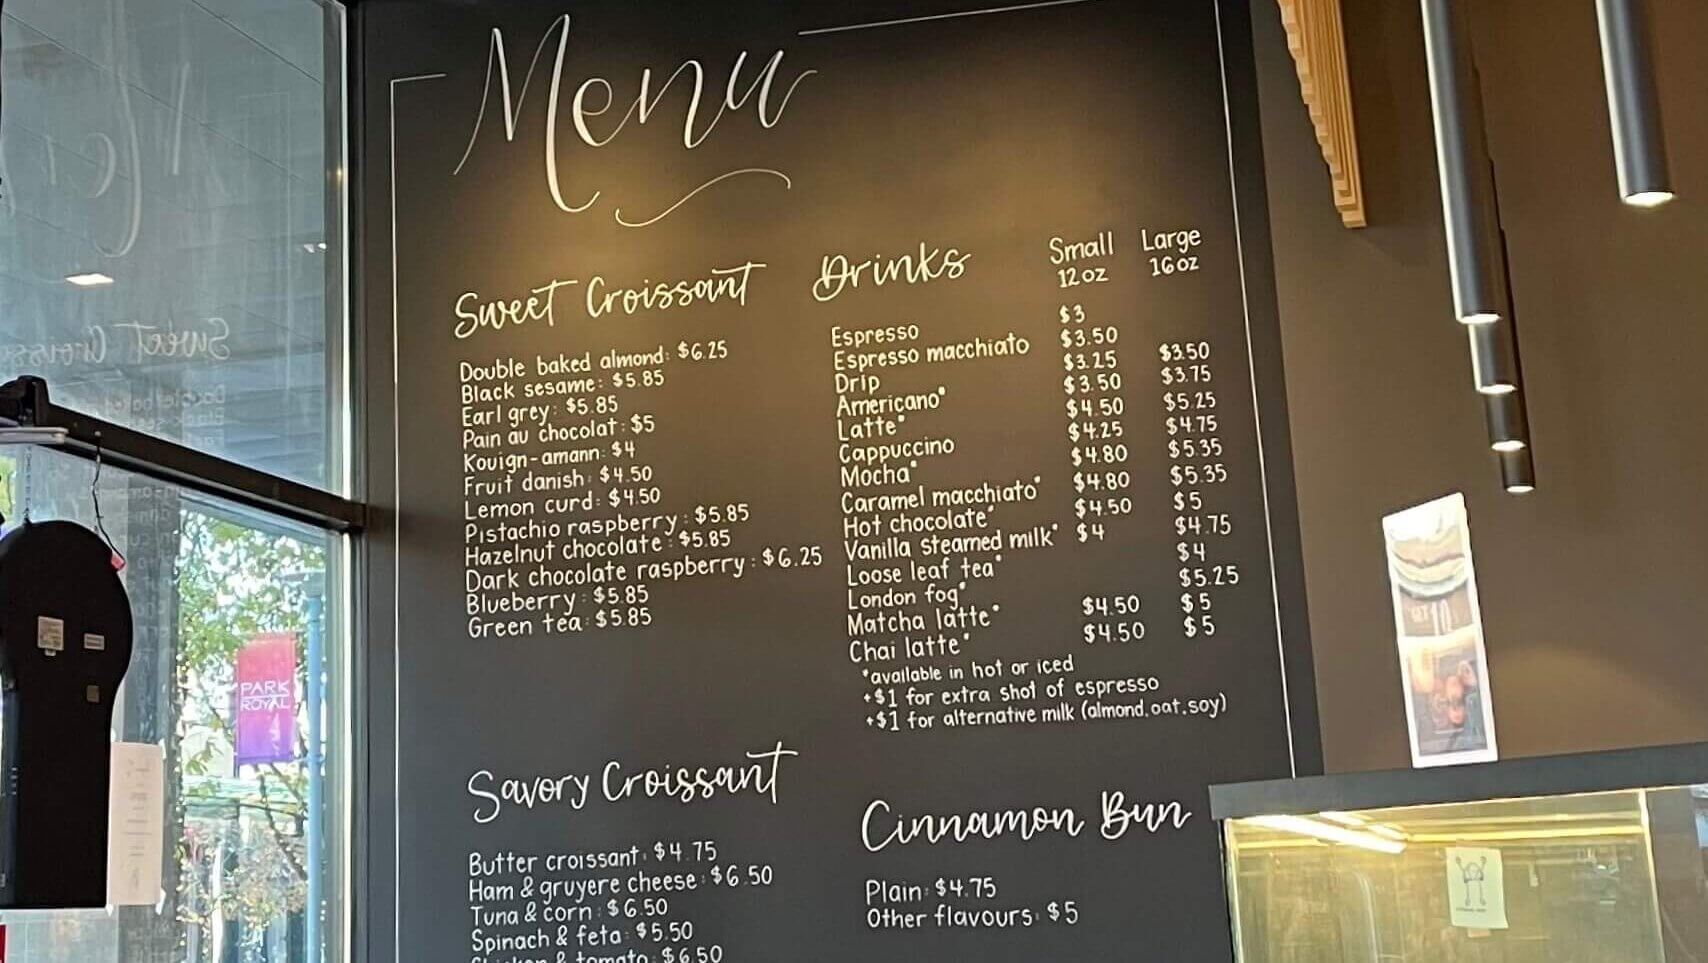 Menu
Sweet Croissant
Double baked almond: $6.25
Black sesame: $5.85
Earl grey: $5.85
Pain au chocolat: $5
Kouign-amann: $4
Fruit danish: $4.50
Lemon curd: $4.50
Pistachio raspberry: $5.85
Hazelnut chocolate: $5.85
Dark chocolate raspberry: $6.25
Blueberry: $5.85
Green tea: $5.85
Drinks Small Large
12oz 16oz
Espresso $3
Espresso macchiato $3.50
Drip $3.25 $3.50
Americano* $3.50 $3.75
Latte* $4.50 $5.25
Cappuccino $4.25 $4.75
Mocha* $4.80 $5.35
Caramel macchiato* $4.80 $5.35
Hot chocolate* $4.50 $5
Vanilla steamed milk* $4 $4.75
Loose leaf tea* $4
London fog* $5.25
Matcha latte* $4.50 $5
Chai latte* $4.50 $5
*available in hot or iced
+$1 for extra shot of espresso
+$1 for alternative milk (almond, oat, soy)
Savory Croissant
Butter croissant: $4.75
Ham & gruyere cheese: $6.50
Tuna & corn: $6.50
Spinach & feta: $5.50
& tomato: $6.50
Cinnamon Bun
Plain: $4.75
Other flavours: $5
PARK
ROYAL